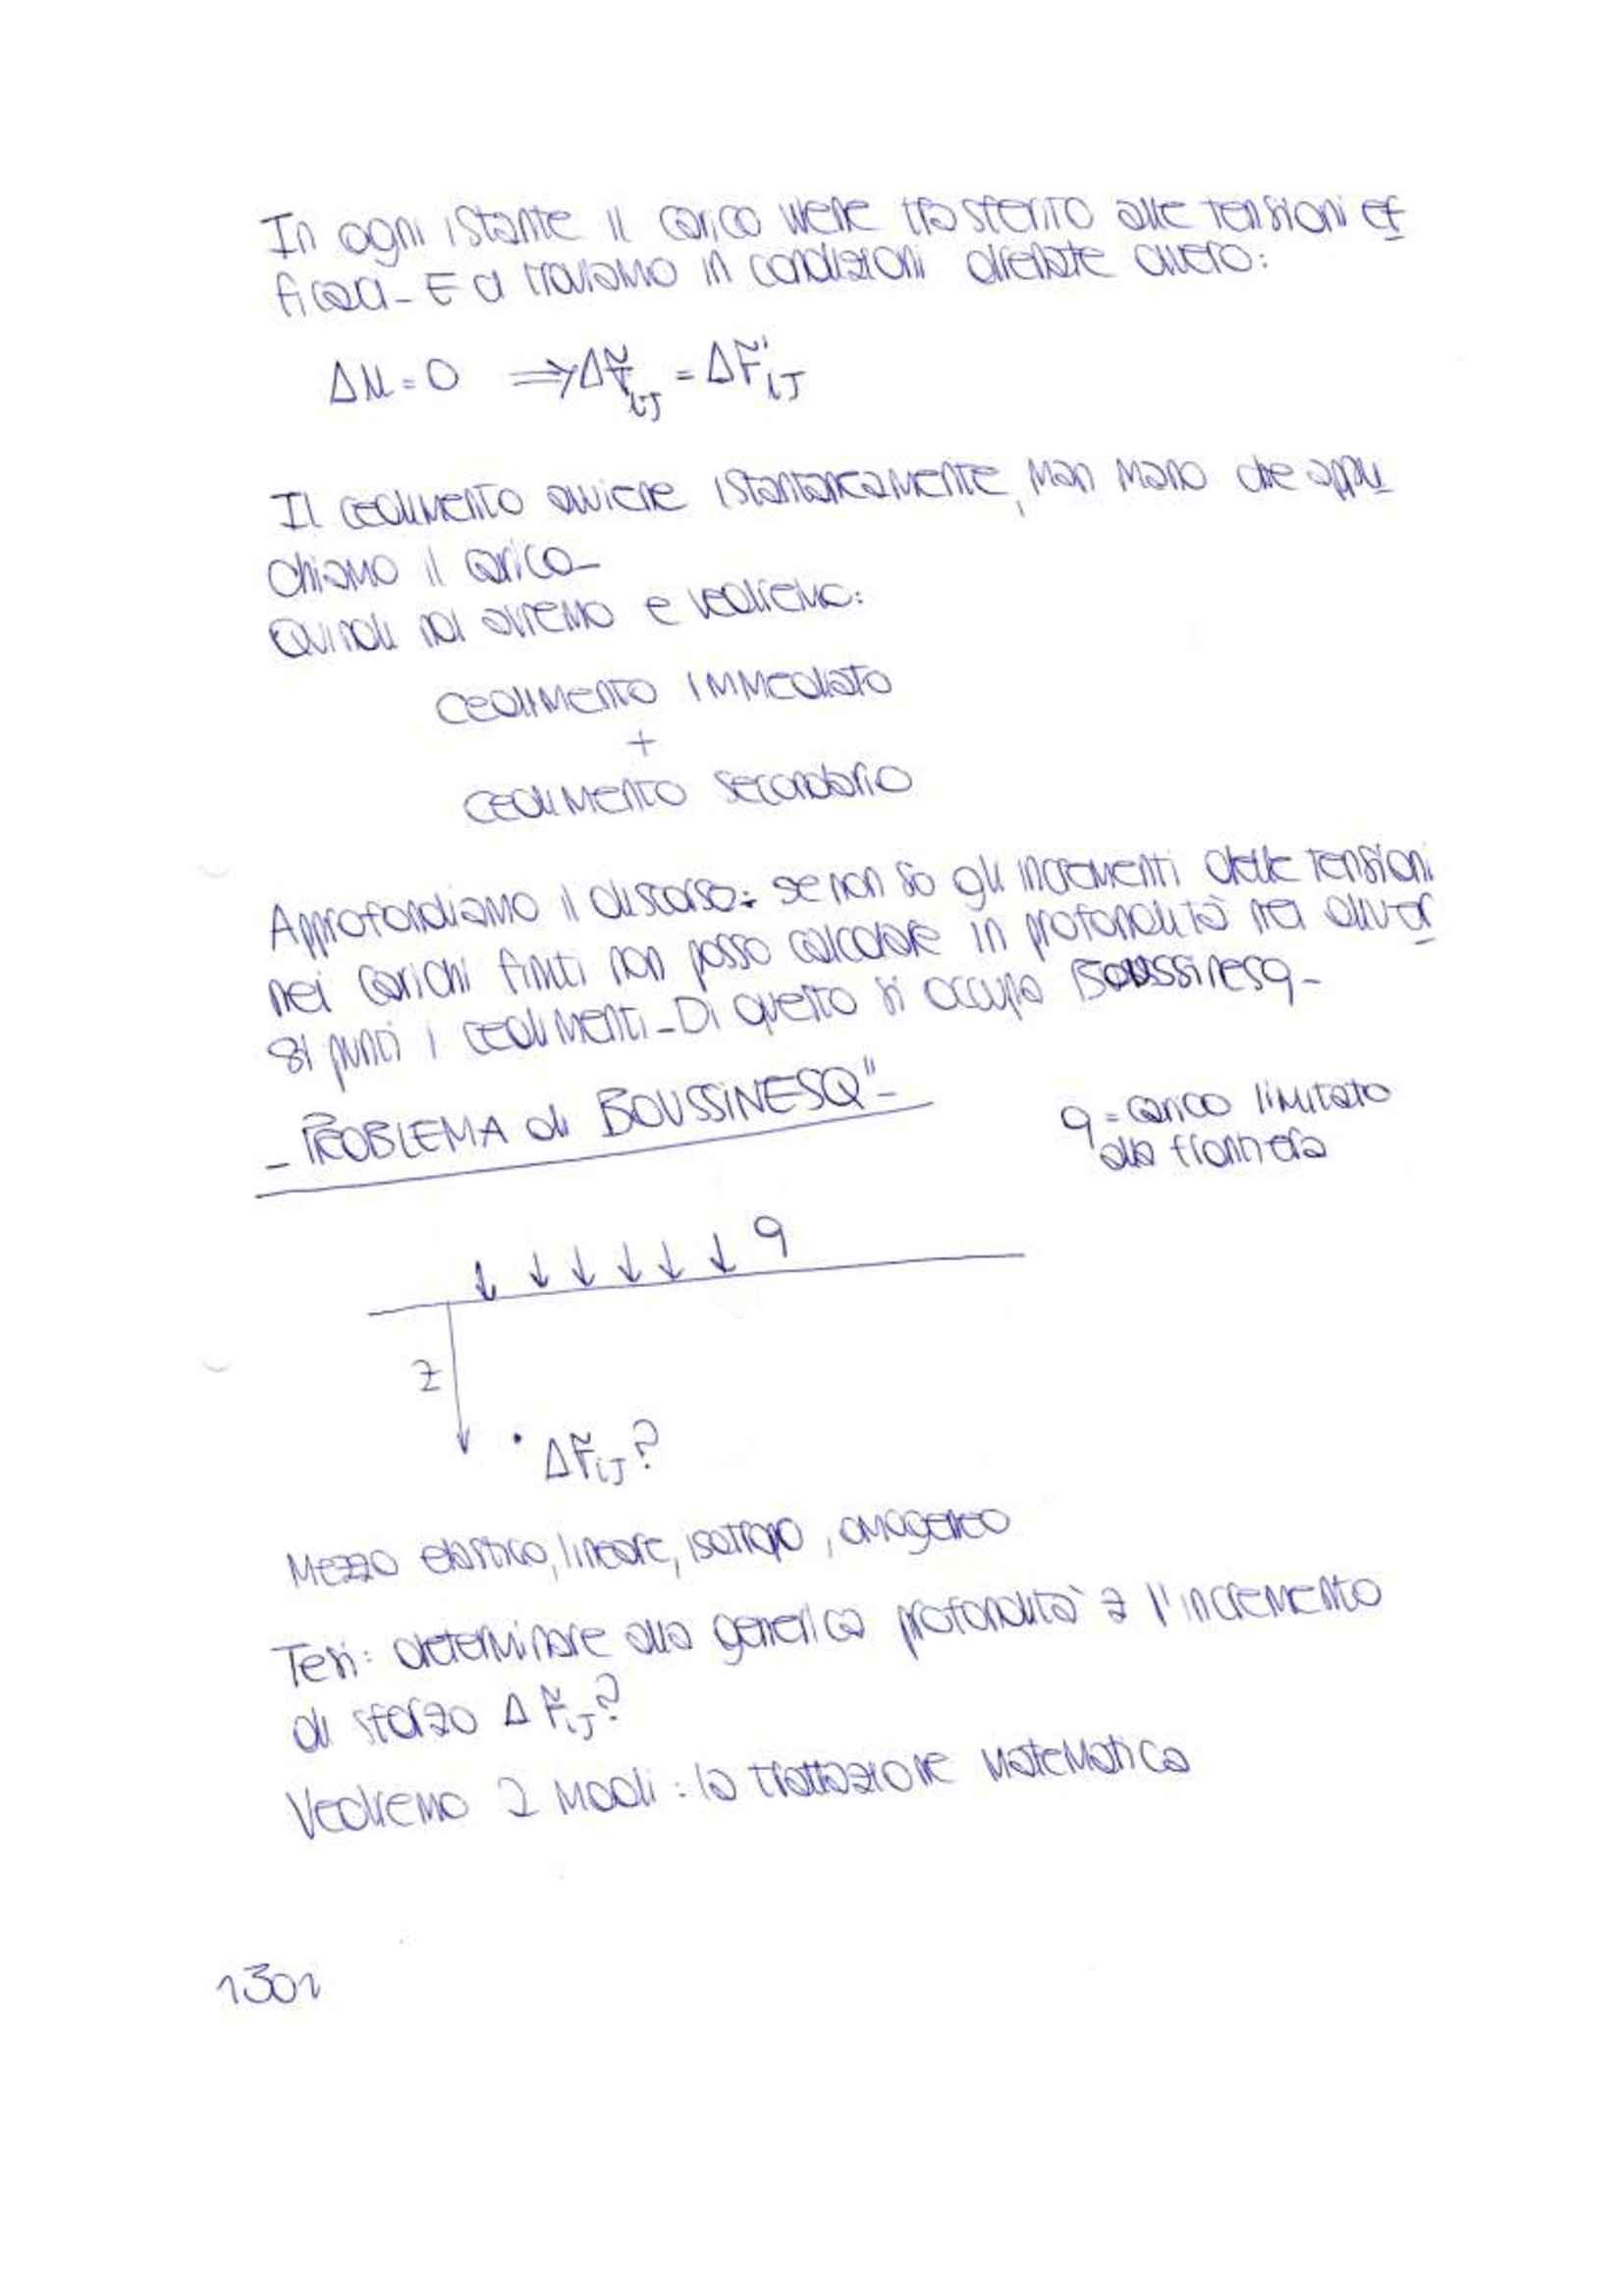 In ogni istante il carico viene trasferito alle tensioni ef
ficaci_ E ci troviamo in condizioni drenate ovvero:
Δu=0 ⇒Δσ̃ij = Δσ̃'ij
Il cedimento avviene istantaneamente, man mano che appli
chiamo il carico_
Quindi noi avremo e vedremo:
cedimento immediato
+
cedimento secondario
Approfondiamo il discorso: se non so gli incrementi delle tensioni
nei carichi finiti non posso calcolare in profondità nei diver
si punti i cedimenti_Di questo si occupa Boussinesq_
_PROBLEMA di BOUSSINESQ"_
q=carico limitato
alla frontiera
q
z
Δσ̃ij?
Mezzo elastico, lineare, isotropo, omogeneo
Tesi: determinare alla generica profondità z l'incremento
di sforzo Δσ̃ij?
Vedremo 2 modi: la trattazione matematica
1301